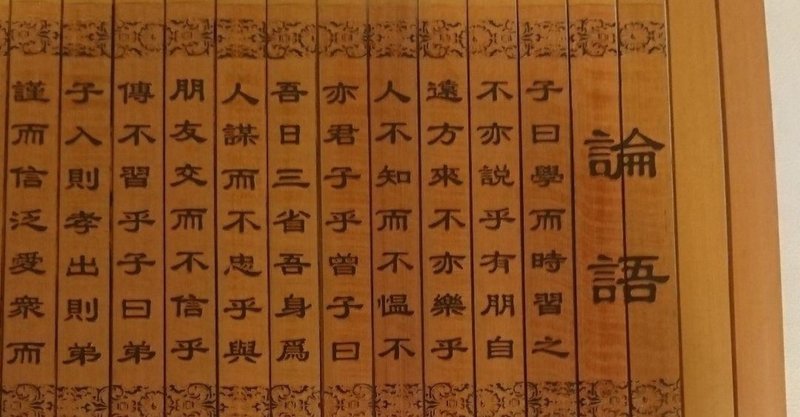 論語
子曰學而時習之
不亦説乎有朋自
遠方來不亦樂乎
人不知而不愠不
亦君子乎曾子曰
吾日三省吾身爲
人謀而不忠乎與
朋友交而不信乎
傳不習乎子曰弟
子入則孝出則弟
謹而信泛愛衆而